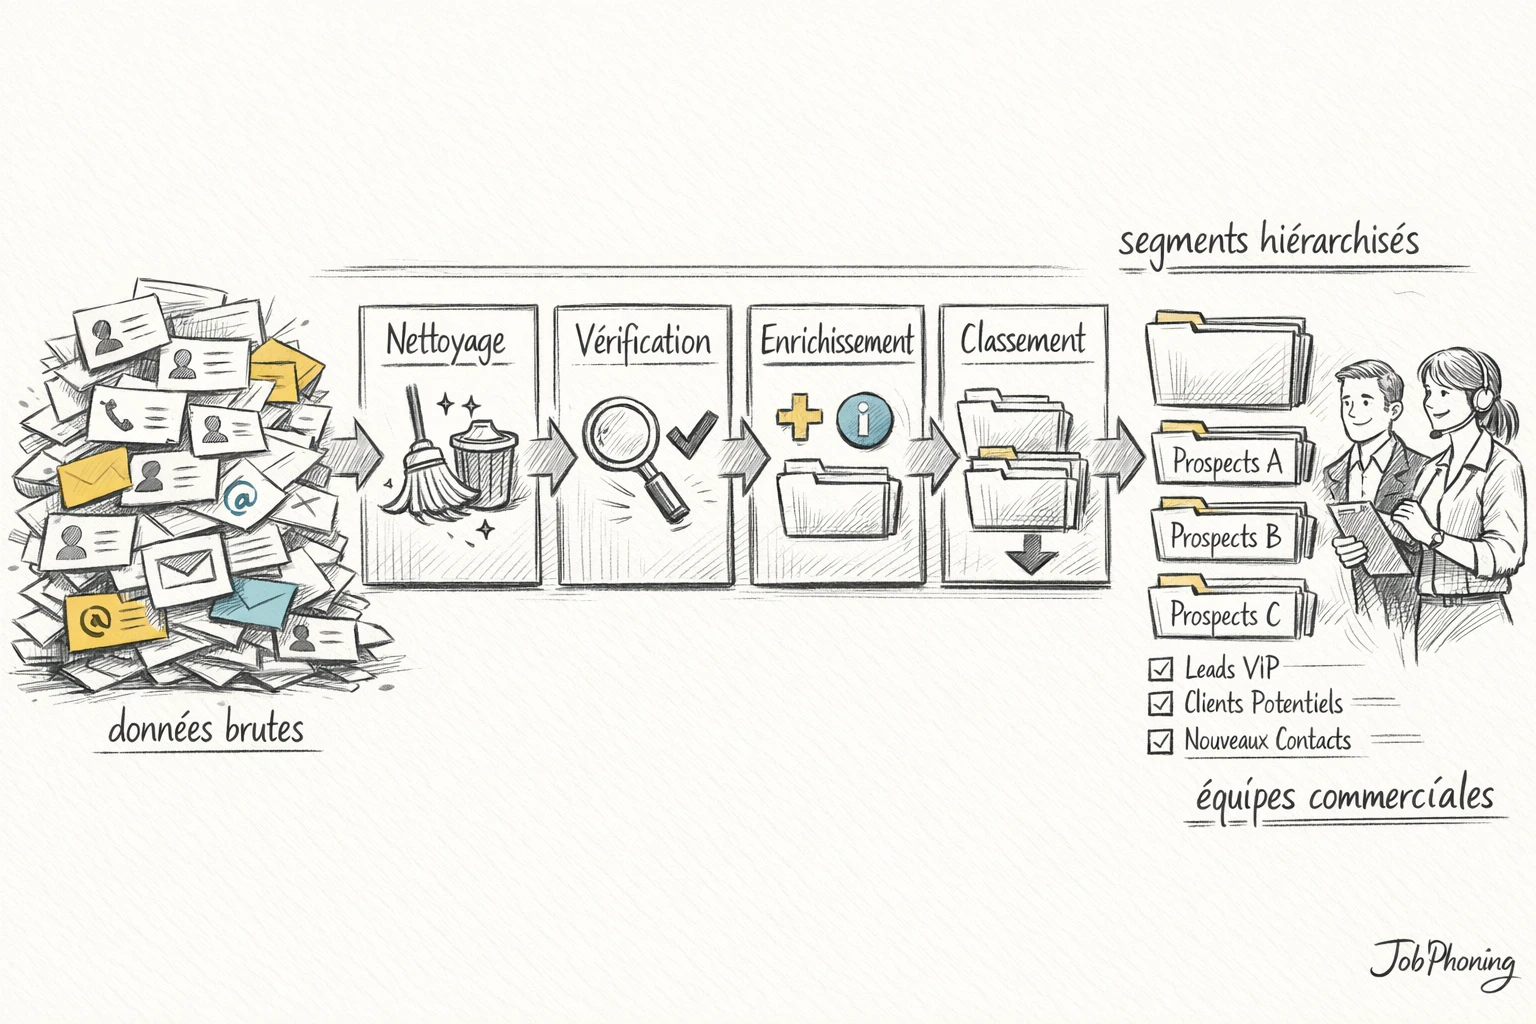 segments hiérarchisés
Nettoyage
Vérification
Enrichissement
Classement
i
Prospects A
Prospects B
Prospects C
@
@
Leads ViP
Clients Potentiels
Nouveaux Contacts
données brutes
équipes commerciales
JobPhoning